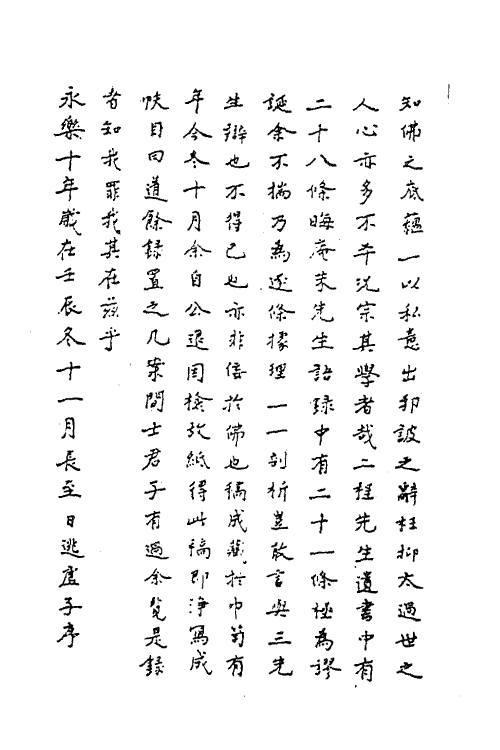 知佛之底蘊一以私意出邪詖之辭枉抑太過世之
人心亦多不平況宗其學者哉二程先生遺書中有
二十八條晦庵朱先生語錄中有二十一條極為謬
誕余不揣乃為逐條據理一一剖析豈敢言與三先
生辯也不得已也亦非佞於佛也稿成藏於巾笥有
年今冬十月余自公退因檢故紙得此稿即淨寫成
帙目曰道餘錄置之几案間士君子有過余覽是錄
者知我罪我其在茲乎
永樂十年歲在壬辰冬十一月長至日逃虛子序